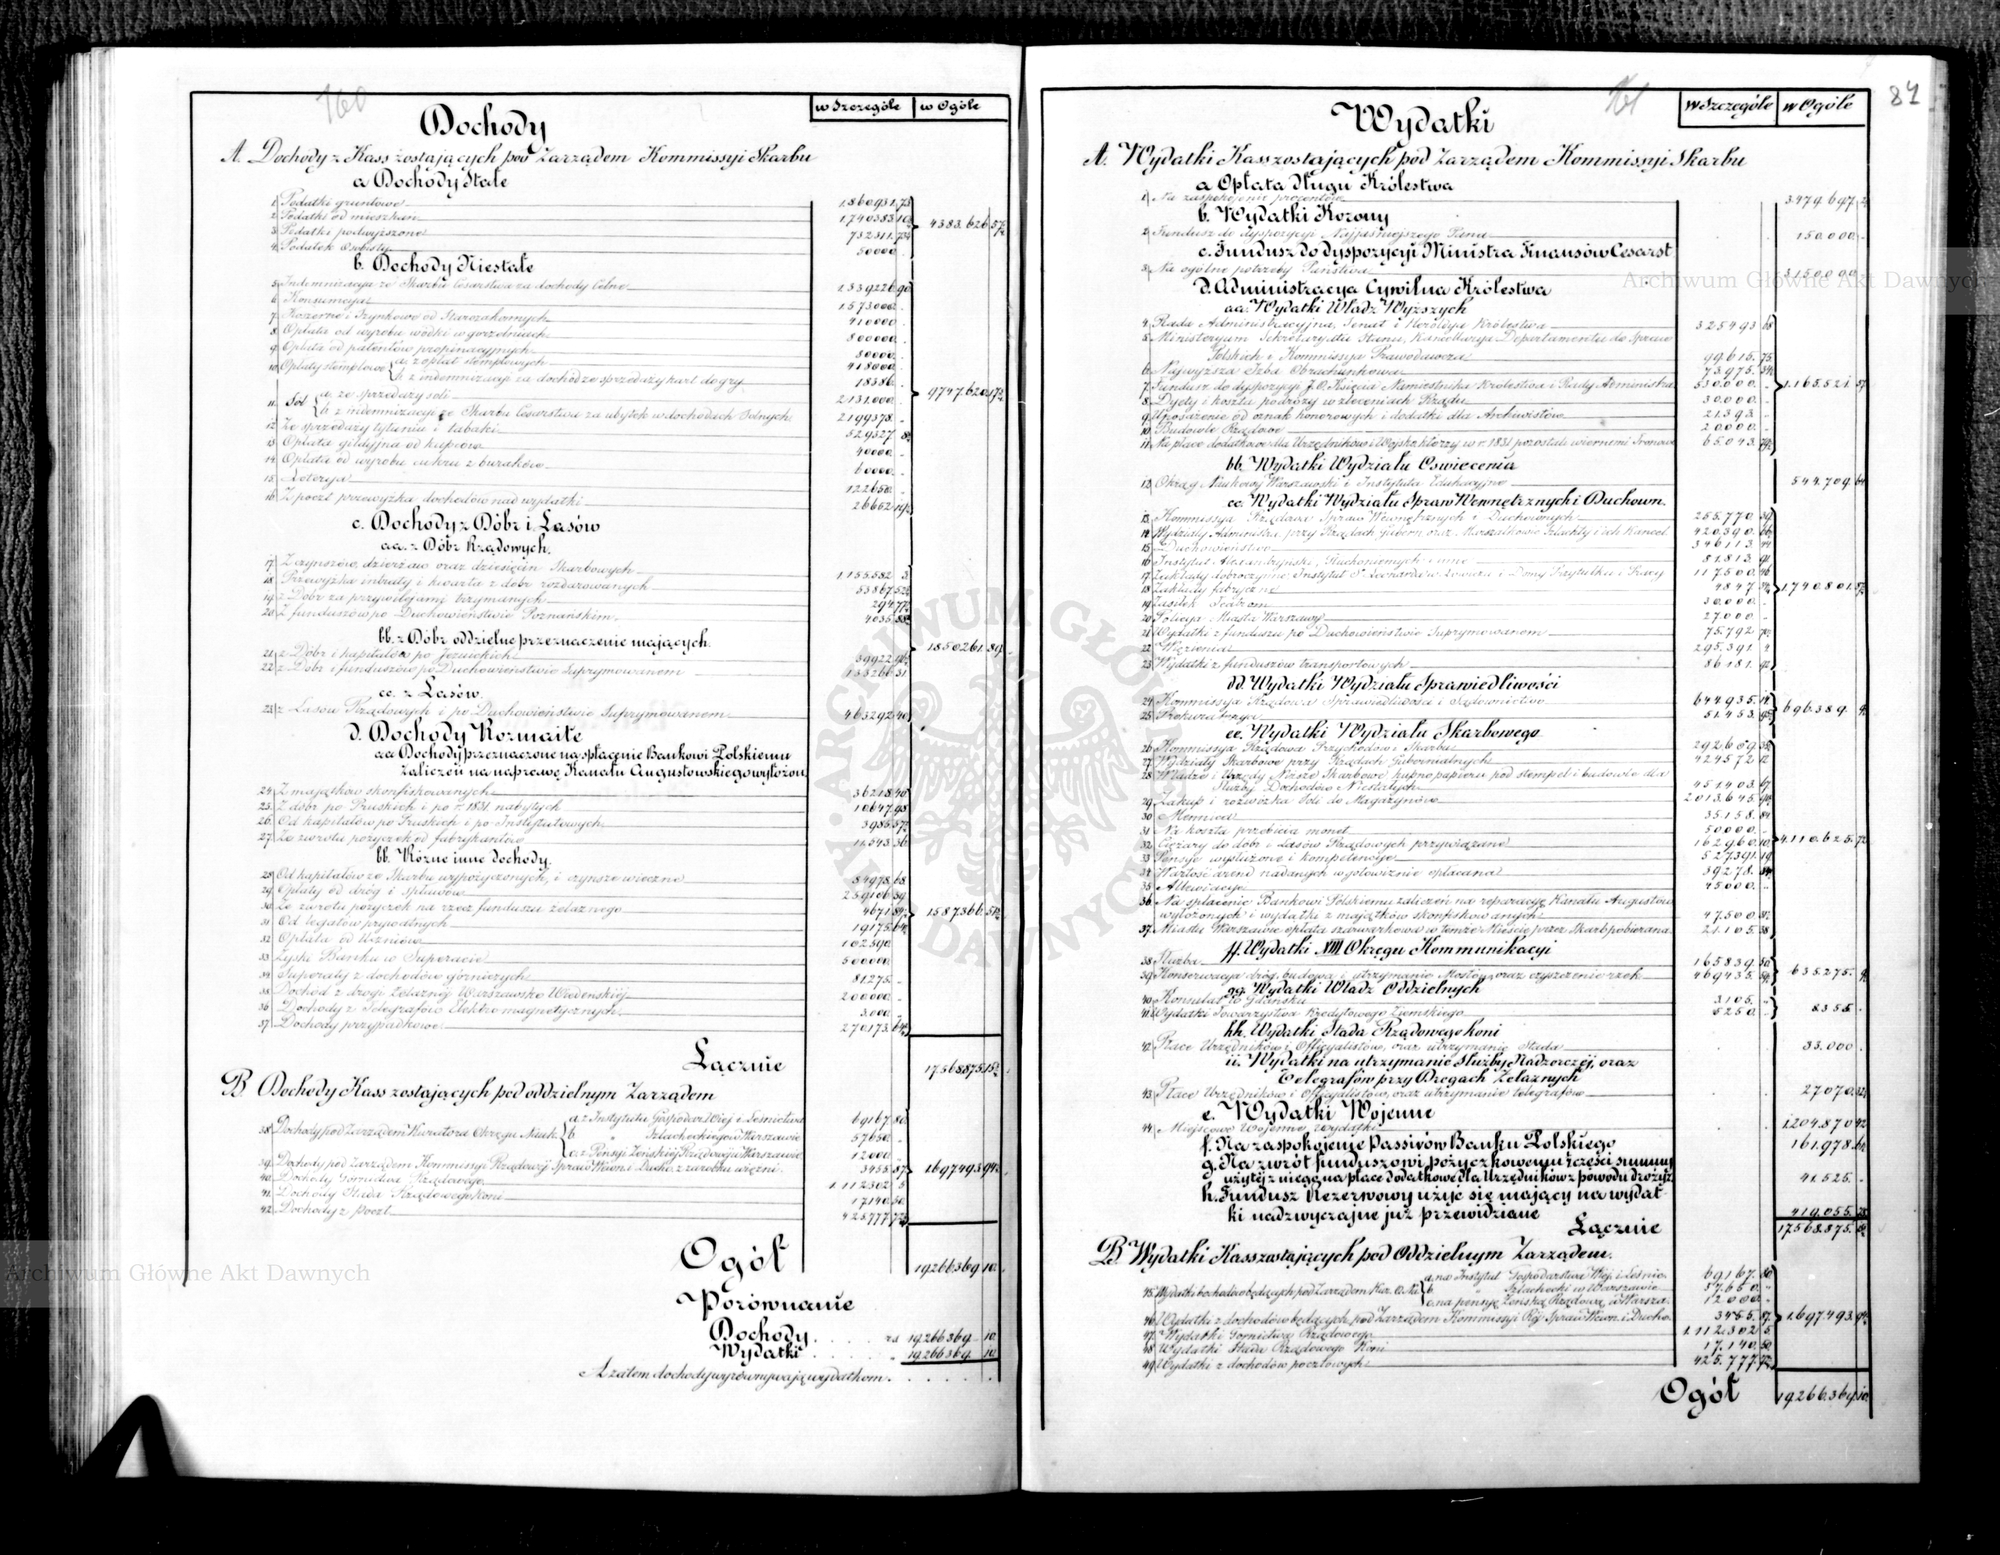 160
w Szczególe w Ogóle
Dochody
A. Dochody z Kass zostających pod Zarządem Kommissyi Skarbu
a Dochody Stałe
1. Podatki gruntowe
2. Podatki od mieszkań
3. Podatki podwyższone
4. Podatek Osobisty 50000
4383.626.
b. Dochody Niestałe
5. Indemnizacya ze Skarbu Cesarstwa za dochody Celne 1339226
6. Konsumcya 1573000
7. Koszerne i Szynkowe od Starozakonnych 410000
8. Opłata od wyrobu wódki w gorzelniach 800000
9. Opłata od patentów propinacyjnych 50000
10. Opłaty stemplowe a. z opłat stemplowych 418000
b. z indemnizacyi za dochód ze sprzedaży kart do gry 18386
11. Sól a. ze sprzedaży soli 2131.000
b. z indemnizacyi ze Skarbu Cesarstwa za ubytek w dochodach Solnych 2199378
12. Ze sprzedaży tytuniu i tabaki 529327
13. Opłata gildyjna od kupców 40000
14. Opłata od wyrobu cukru z buraków 60000
15. Loterya 122650
16. Z poczt przewyżka dochodów nad wydatki 26652
9747.620
c. Dochody z Dóbr i Lasów
aa. z Dóbr Rządowych.
17. Z czynszów, dzierżaw oraz dziesięcin Skarbowych 1.155.582
18. Przewyżka intraty i kwarta z dóbr rozdarowanych 53867
19. z Dóbr za przywilejami trzymanych
20. Z funduszów po Duchowieństwie Poznańskim 4035
bb. z Dóbr oddzielne przeznaczenie mających.
21. z Dóbr i kapitałów po Jezuickich 39922
22. z Dóbr i funduszów po Duchowieństwie Supprymowanem 133266
cc. z Lasów.
23. z Lasów Rządowych i po Duchowieństwie Supprymowanem 463292 40
1850261. 89
d. Dochody Rozmaite
aa Dochody przeznaczone na spłacenie Bankowi Polskiemu
zaliczeń na naprawę Kanału Augustowskiego wyłożon.
24. Z majątków skonfiskowanych 36218
25. Z dóbr po Pruskich i po r. 1831 nabytych 10647 98
26. Od kapitałów po Pruskich i po Instytutowych
27. Ze zwrotu pożyczek od fabrykantów 11.543 36
bb. Różne inne dochody.
28. Od kapitałów ze Skarbu wypożyczonych, i czynsze wieczne 84978 68
29. Opłaty od dróg i spławów 239106 39
30. Ze zwrotu pożyczek na rzecz funduszu żelaznego
31. Od legatów prywatnych
32. Opłata od Więźniów
33. Zyski Banku w Superacie 500000
34. Superaty z dochodów górniczych 81.275
35. Dochód z drogi Żelaznéj Warszawsko Wiedeńskiéj 200000
36. Dochody z Telegrafów Elektro magnetycznych 3.000
37. Dochody przypadkowe 270173
1587366.
Łącznie 17568875
B. Dochody Kass zostających pod oddzielnym Zarządem
38. Dochody pod Zarządem Kuratora Okręgu Nauk. a. z Instytutu Gospodar. Wiej. i Leśnictwa 69167 80
b. " Szlacheckiego w Warszawie 57650
c. z Pensyi Żeńskiéj Rządowéj w Warszawie 12000
39. Dochody pod Zarządem Kommissyi Rządowéj Spraw Wewn. i Ducho. z zarobku więźni. 3455 87
40. Dochody Górnictwa Rządowego 1.112302 5
41. Dochody Stada Rządowego Koni 17140 50
42. Dochody z poczt 425777
1697493 94
Ogół 19266369 10.
Porównanie
Dochody rs 19.266369 10
Wydatki " 19.266369 10.
A zatem dochody wyrównywają wydatkom.
161
87
w Szczególe w Ogóle
Wydatki
A. Wydatki Kass zostających pod Zarządem Kommissyi Skarbu
a Opłata Długu Królestwa
1. Na zaspokojenie procentów 3.479.697
b. Wydatki Korony
2. Fundusz do dyspozycyi Najjaśniejszego Pana 150.000
c. Fundusz do dyspozycyi Ministra Finansów Cesarst.
3. Na ogólne potrzeby Państwa 3.150.000
d. Administracya Cywilna Królestwa
aa. Wydatki Władz Wyższych
4. Rada Administracyjna, Senat i Heroldya Królestwa 325493 68
5. Ministeryum Sekretaryatu Stanu, Kancellarya Departamentu do Spraw
Polskich i Kommissya Prawodawcza 99616. 75
6. Najwyższa Izba Obrachunkowa 73975.
7. Fundusz do dyspozycyi J.O. Księcia Namiestnika Królestwa i Rady Administra.
8. Dyety i koszta podróży w zleceniach Rządu 30.000
9. Uposażenie od oznak honorowych i dodatki dla Archiwistów 21.393
10. Budowle Rządowe 20000
11. Na płace dodatkowe dla Urzędników i Wojska którzy w r. 1831 pozostali wiernemi Tronowi 65043
1.165.521. 57
bb. Wydatki Wydziału Oświecenia
12. Okrąg Naukowy Warszawski i Instytuta Edukacyjne 544.709. 64
cc. Wydatki Wydziału Spraw Wewnętrznych i Duchown.
13. Kommissya Rządowa Spraw Wewnętrznych i Duchownych 255.770
14. Wydziały Administra. przy Rządach Gubern. oraz Marszałkowie Szlachty i ich Kancel. 420390
15. Duchowieństwo 346113
16. Instytut Alexandryjski, Głuchoniemych i inne 81813
17. Zakłady dobroczynne Instytut Sgo Leonarda w Łowiczu i Domy Przytułku i Pracy 117500
18. Zakłady fabryczne 4847
19. Zasiłek Teatrom 30.000
20. Policya Miasta Warszawy 27000
21. Wydatki z funduszu po Duchowieństwie Supprymowanem 75.792
22. Więzienia 295.391
23. Wydatki z funduszów transportowych 86181. 92
1.740801. 87
dd. Wydatki Wydziału Sprawiedliwości
24. Kommissya Rządowa Sprawiedliwości i Sądownictwo 644935
25. Prokuratorya 51.453.
696389.
ee. Wydatki Wydziału Skarbowego
26. Kommissya Rządowa Przychodów i Skarbu 292609
27. Wydziały Skarbowe przy Rządach Gubernialnych 424572 12
28. Władze i Urzędy Niższe Skarbowe kupno papieru pod stempel i budowle dla
Służby Dochodów Niestałych 451403 67
29. Zakup i rozwózka Soli do Magazynów 2013645
30. Mennica 35158 84
31. Na koszta przebicia monet 50000
32. Ciężary do dóbr i Lasów Rządowych przywiązane 162960
33. Pensye wysłużone i kompetencye 527391. 19
34. Wartość arend nadanych w gotowiźnie opłacana 39278
35. Allewiacye 45000
36. Na spłacenie Bankowi Polskiemu zaliczeń na reparacyę Kanału Augustow.
wyłożonych i wydatki z majątków skonfiskowanych 47.500
37. Miastu Warszawie opłata szarwarkowa w temże Mieście przez Skarb pobierana 21.105 38
4.110.625. 72
ff. Wydatki XIII Okręgu Kommunikacyi
38. Służba 165839
39. Konserwacya dróg, budowa i utrzymanie Mostów, oraz czyszczenie rzek 469435
635275.
gg. Wydatki Władz Oddzielnych
40. Konsulat w Gdańsku 3105
41. Wydatki Towarzystwa Kredytowego Ziemskiego 5250
8355.
hh. Wydatki Stada Rządowego Koni
42. Płace Urzędników i Officyalistów, oraz utrzymanie Stada 33.000
ii. Wydatki na utrzymanie Służby Nadzorczéj, oraz
Telegrafów przy Drogach Żelaznych
43. Płace Urzędników i Officyalistów, oraz utrzymanie telegrafów 27070
e. Wydatki Wojenne
44. Miejscowe Wojenne wydatki 1.204.870
f. Na zaspokojenie Passivów Banku Polskiego 161.978
g. Na zwrot funduszowi pożyczkowemu części summy
użytéj z niego na płace dodatkowe dla Urzędników z powodu drożyz. 41.525.
h. Fundusz Rezerwowy użyć się mający na wydat-
ki nadzwyczajne już przewidziane 419.055.
Łącznie 17.568.875.
B. Wydatki Kass zostających pod Oddzielnym Zarządem.
45. Wydatki z dochodów będących pod Zarządem Kur. O. Na. a. na Instytut Gospodarstwa Wiej. i Leśnic. 69167. 80
b. " Szlachecki w Warszawie 57.650
c. na pensyę Żeńską Rządową w Warsza. 12000
46. Wydatki z dochodów będących pod Zarządem Kommissyi Rzą. Spraw Wewn. i Ducho. 3455. 87
47. Wydatki Górnictwa Rządowego 1.112.302 5
48. Wydatki Stada Rządowego Koni 17.140 50
49. Wydatki z dochodów pocztowych 425.777
1.697.493. 94
Ogół 19.266.369. 10
Archiwum Główne Akt Dawnych
Archiwum Główne Akt Dawnych
ARCHIWUM GŁÓWNE AKT DAWNYCH